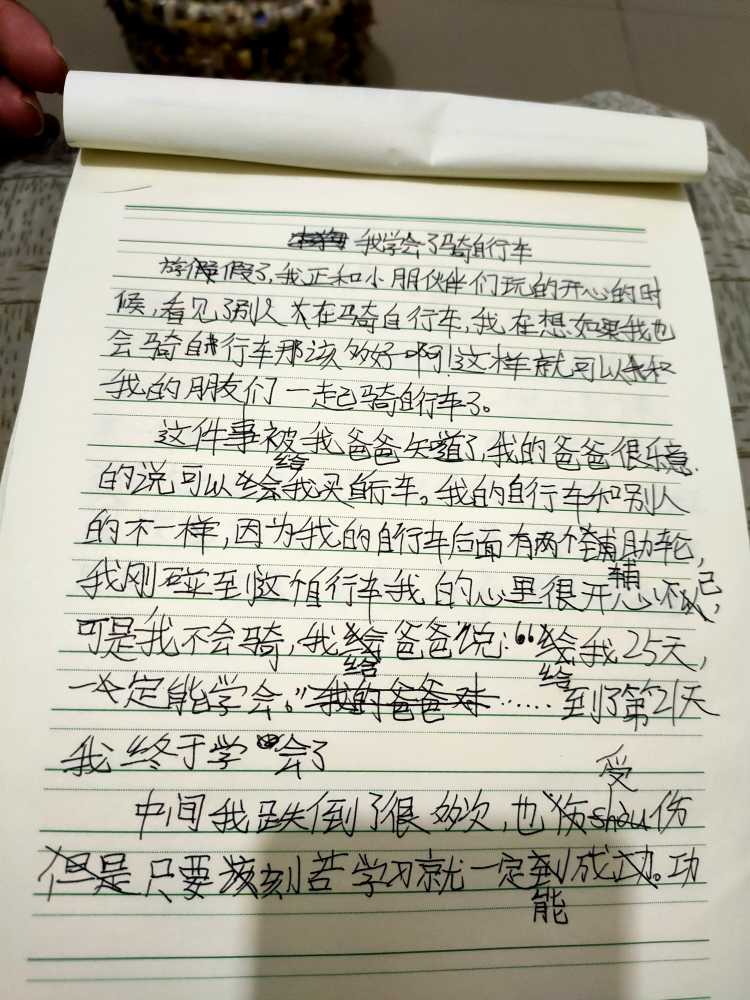 我学会了骑自行车
放假了，我正和小朋伙伴们玩的开心的时
候，看见了别人在骑自行车，我在想如果我也
会骑自行车那该多好啊！这样就可以和
我的朋友们一起骑自行车了。
这件事被我爸爸知道了，我的爸爸很乐意
的说可以给我买自行车。我的自行车和别人
的不一样，因为我的自行车后面有两个辅助轮，
我刚碰到这个自行车我的心里很开心不已，
可是我不会骑，我给爸爸说：“给我25天，
一定能学会。”……到了第21天
我终于学会了
中间我跌倒了很多次，也受伤
只要刻苦学习就一定能成功。